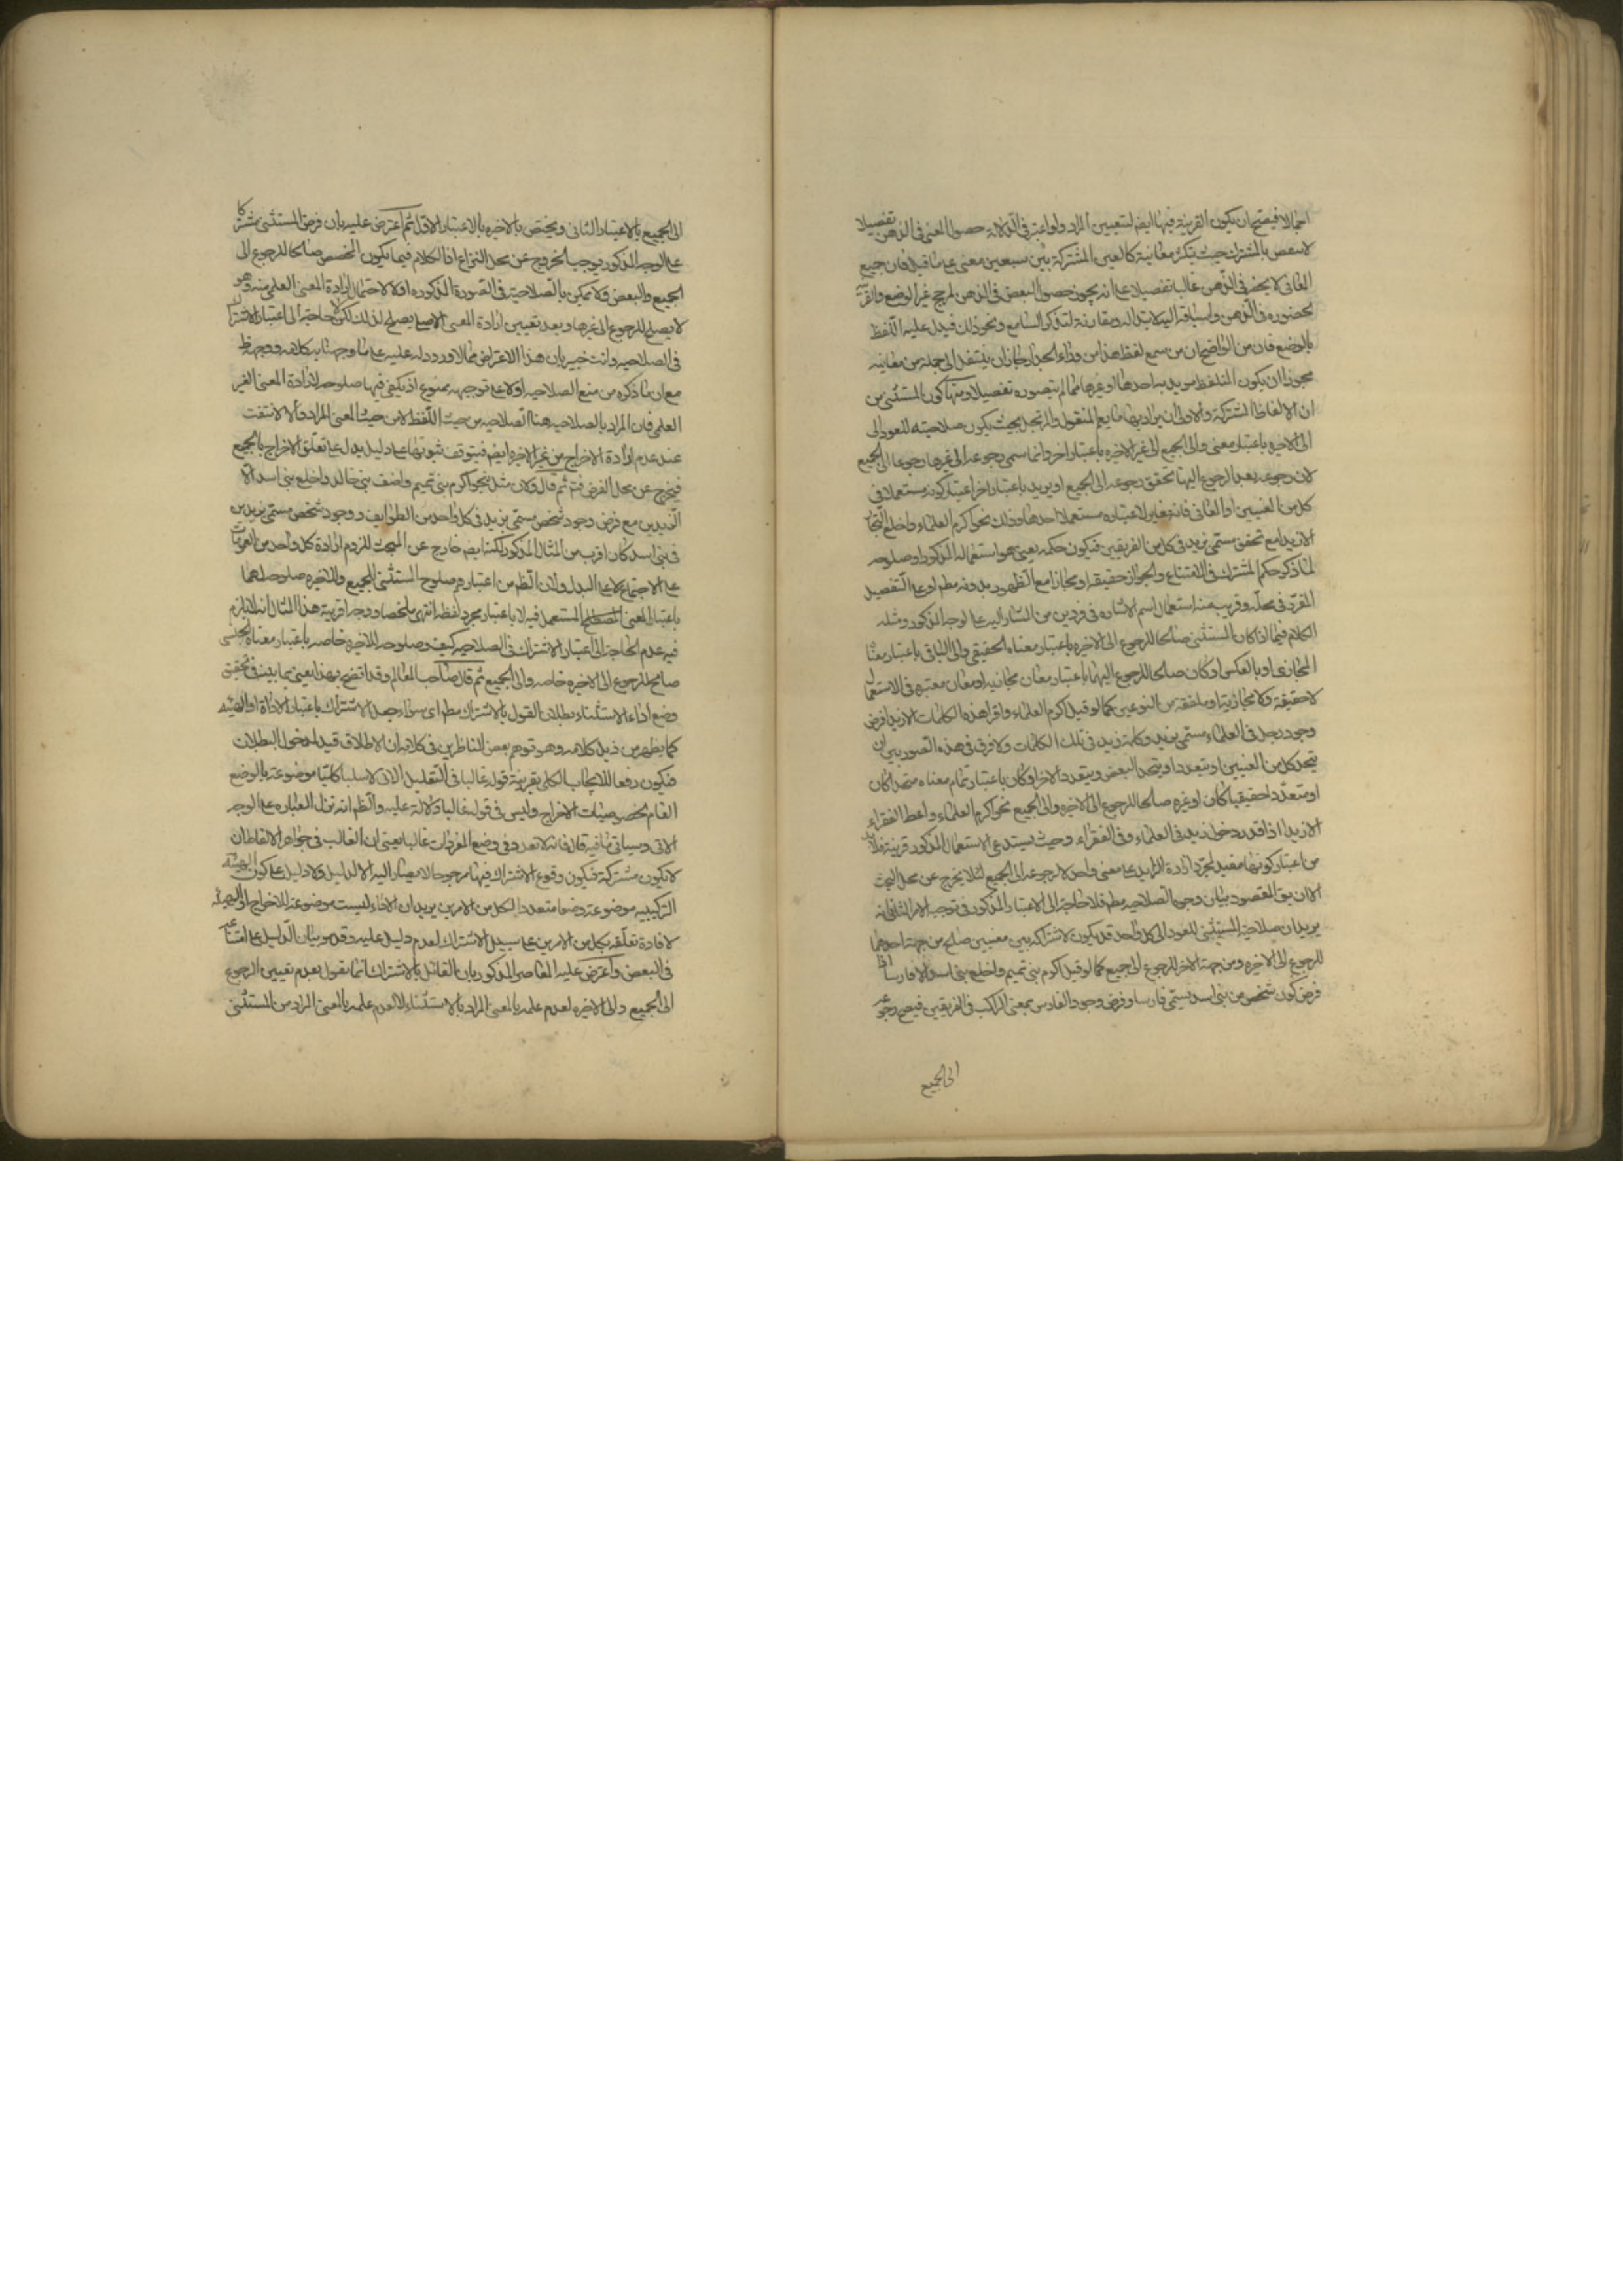 اجمالا فيصح ان يكون القرينة فيها ايضا لتعيين المراد ولو اعتبر في الدلالة حصول المعنى في الذهن تفصيلا
بالمشترك حيث يتكثر معانيه كالعين المشتركة بين سبعين معنى على ما قيل فان جميع
المعاني لا يحضر في الذهن غالبا تفصيلا على انه يجوز حصول البعض في الذهن لمرجح غير الوضع
في الذهن ونحو ذلك فيدل عليه اللفظ
بالوضع فان من الواضح ان من سمع لفظ هذا من وراء الجدار جاز ان ينتقل الى جملة من معانيه
مجوزا ان يكون المتلفظ مريد به احدها او غيرها مما لم يتصوره تفصيلا ومنها كون المستثنى من
الالفاظ المشتركة والاولى ان يراد بها ما يعم المنقول والمرتجل بحيث يكون صلاحيته للعود الى
الى الاخيرة باعتبار معنى والى الجميع الى غير الاخيرة باعتبار اخر وانما سمى رجوعه الى غيرها رجوعا الى الجميع
لان رجوعه بعد الرجوع اليها تحقق رجوعه الى الجميع او يريد باعتبار اخر اعتبار كونه مستعملا في
كل من المعنيين او المعاني فانه مغاير لاعتباره مستعملا احدها وذلك نحو اكرم العلماء واخلع التجار
الا زيدا مع تحقق مسمى بزيد في كل من الفريقين فيكون حكمه يعني هو استعماله المذكور او صلوحه
لما ذكر حكم المشترك في الامتناع والجواز حقيقة او مجازا مع الظهور بدونه مطم او على التفصيل
المقرر في محله وقريب منه استعمال اسم الاشارة في فردين من المشار اليه على الوجه المذكور ومثله
الكلام فيما اذا كان المستثنى صالحا للرجوع الى الاخيرة باعتبار معناه الحقيقي والى الباقي باعتبار معناه
المجازي او بالعكس او كان صالحا للرجوع اليهما باعتبار معان مجازية او معان معتبرة في الاستعمال
لا حقيقة ولا مجازية او ملفقة من النوعين كما لو قيل اكرم العلماء واقرا هذه الكلمات الا زيدا فرض
وجود رجل في العلماء مسمى بزيد وكلمة زيد في تلك الكلمات ولا فرق في هذه الصور بين ان
يتحد كل من المعنيين او يتعددا او يتحد البعض ويتعدد الاخر او كان باعتبار تمام معناه متحدا كان
او متعددا حقيقيا كان او غيره صالحا للرجوع الى الاخيرة والى الجميع نحو اكرم العلماء واعط الفقراء
الا زيدا اذا قدر دخول زيد في العلماء وفي الفقراء وحيث يستدعي الاستعمال المذكور قرينة فلا بد
من اعتبار كونها مفيدة لمجرد ارادة الزايد على معنى واحد لا رجوعه الى الجميع لئلا يخرج عن محل البحث
الا ان يق المقصود بيان وجوه الصلاحية مطم فلا حاجة الى الاعتبار المذكور في توجيه الامر الثاني انه
يريد ان صلاحية المستثنى للعود الى كل واحد قد يكون لاشتراكه بين معنيين صلح من جهة احدهما
للرجوع الى الاخيرة ومن جهة الاخر للرجوع الى الجميع كما لو قيل اكرم بني تميم واخلع بني اسد الا فارسا اذا
فرض كون شخص من بني اسد يسمى فارسا وفرض وجود الفارس بمعنى الراكب في الفريقين فيصح رجوعه
الى الجميع
الى الجميع بالاعتبار الثاني ويختص بالاخيرة بالاعتبار الاول ثم اعترض عليه بان فرض المستثنى مشتركا
على الوجه المذكور يوجب الخروج عن محل النزاع اذ الكلام فيما يكون المخصص صالحا للرجوع الى
الجميع والبعض ولا تمكين بالصلاحية في الصورة المذكورة اولا لاحتمال ارادة المعنى العلمي منه وهو
لا يصلح للرجوع الى غيرها وبعد تعيين ارادة المعنى الاصلي يصلح لذلك لكن لا حاجة الى اعتبار الاشتراك
في الصلاحية وانت خبير بان هذا الاعتراض مما لا ورود له عليه على ما وجهنا به كلامه ووجهه ظ
مع ان ما ذكره من منع الصلاحية اولا على توجيهه ممنوع اذ يكفي فيها صلوحه لارادة المعنى الغير
العلمي فان المراد بالصلاحية هنا الصلاحية من حيث اللفظ لا من حيث المعنى المراد والا لانتفت
عند عدم ارادة الاخراج من غير الاخيرة ايضا فيتوقف ثبوتها على دليل يدل على تعلق الاخراج بالجميع
فيخرج عن محل الفرض فتم ثم قال ولان مثل نحو اكرم بني تميم واضف بني خالد واخلع بني اسد الا
الزيدين مع فرض وجود شخص مسمى بزيد في كل واحد من الطوايف ووجود شخص مسمى بزيدين
في بني اسد كان اقرب من المثال المذكور لكنه ايضا خارج عن المبحث للزوم ارادة كل واحد من العمومات
على الاجتماع لا على البدل ولان الظم من اعتبارهم صلوح المستثنى للجميع وللاخيرة صلوحه لهما
باعتبار المعنى المصطلح المستعمل فيه لا باعتبار مجرد لفظه انتهى ملخصا ووجه اقربية هذا المثال انه لا يلزم
فيه عدم الحاجة الى اعتبار الاشتراك في الصلاحية كيف وصلوحه للاخيرة خاصة باعتبار معناه الجنسي
صالح للرجوع الى الاخيرة خاصة والى الجميع ثم قال صاحب المعالم وقد اتضح بهذا يعني بما بينه في تحقيق
وضع اداة الاستثناء بطلان القول بالاشتراك مطم اي سواء جعل الاشتراك باعتبار الاداة او الهيئة
كما يظهر من ذيل كلامه وهو توهم بعض الناظرين في كلامه ان الاطلاق قيد لمدخول البطلان
فيكون رفعا للايجاب الكلي بقرينة قوله غالبا في التعليل الاتي لا سلبا كليا موضوعة بالوضع
العام لخصوصيات الاخراج وليس في قوله غالبا دلالة عليه والظم انه نزل العبارة على الوجه
الاتي وسياتي ما فيه قال فانه لا تعدد في وضع المفردات غالبا يعني ان الغالب في جواهر الالفاظ ان
لا يكون مشتركة فيكون وقوع الاشتراك فيها مرجوحا لا يصار اليه الا لدليل ولا دليل على كون الهيئة
التركيبية موضوعة وضعا متعددا لكل من الامرين يريد ان الاداة ليست موضوعة للاخراج او الهيئة
لافادة تعلقه بكل من الامرين على سبيل الاشتراك لعدم دليل عليه وقد مر بيان الدليل على امتناعه
في البعض واعترض عليه المعاصر المذكور بان القائل بالاشتراك انما يقول بعدم تعيين الرجوع
الى الجميع والى الاخيرة لعدم علمه بالمعنى المراد بالاستثناء لا لعدم علمه بالمعنى المراد من المستثنى